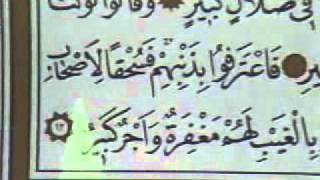 فِي ضَلَالٍ كَبِيرٍ وَقَالُوا لَوْ كُنَّا
فَاعْتَرَفُوا بِذَنْبِهِمْ فَسُحْقًا لِأَصْحَابِ
بِالْغَيْبِ لَهُمْ مَغْفِرَةٌ وَأَجْرٌ كَبِيرٌ ١٢